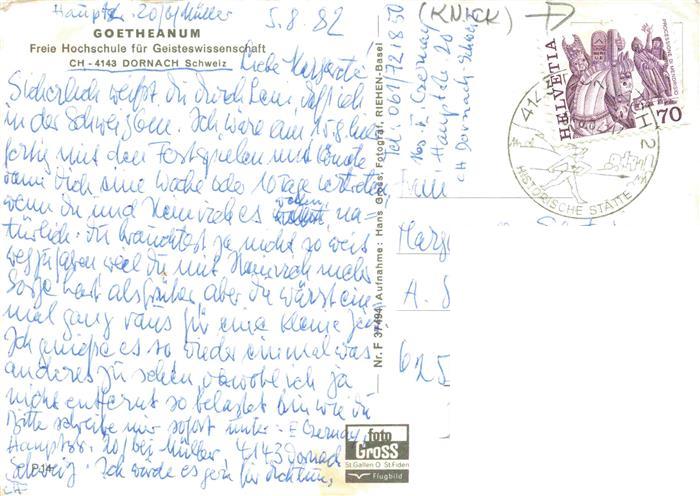 Hauptstr. 20/b/Müller 5.8.82
GOETHEANUM
Freie Hochschule für Geisteswissenschaft
CH - 4143 DORNACH Schweiz
Liebe Margarete
Sicherlich weißt du durch Leni, daß ich
in der Schweiz bin. Ich wäre am 15.8. hier
fertig mit den Festspielen und könnte
dann dich eine Woche oder 10 Tage vertreten
wenn du und Heinrich es wollen na-
türlich. Du brauchtest ja nicht so weit
wegzufahren weil du mit Heinrich mehr
Sorge hast als früher aber du wärst ein-
mal ganz raus für eine kleine Zeit
Ich genieße es so wieder einmal was
anderes zu sehen obwohl ich ja
nicht entfernt so belastet bin wie du
Bitte schreibe mir sofort unter: E. Czernay,
Hauptstr. 20/bei Müller 4143 Dornach
Schweiz. Ich würde es gern für dich tun,
P 14
CH
Nr. F 37494 Aufnahme: Hans Gross, Fotograf, RIEHEN-Basel
Tel: 061/721850
Czernay
Hauptstr. 20
CH Dornach-Schweiz
(KNICK)
HELVETIA
70
HISTORISCHE STÄTTE
A. S
625
foto
Gross
St.Gallen O St.Fiden
Flugbild